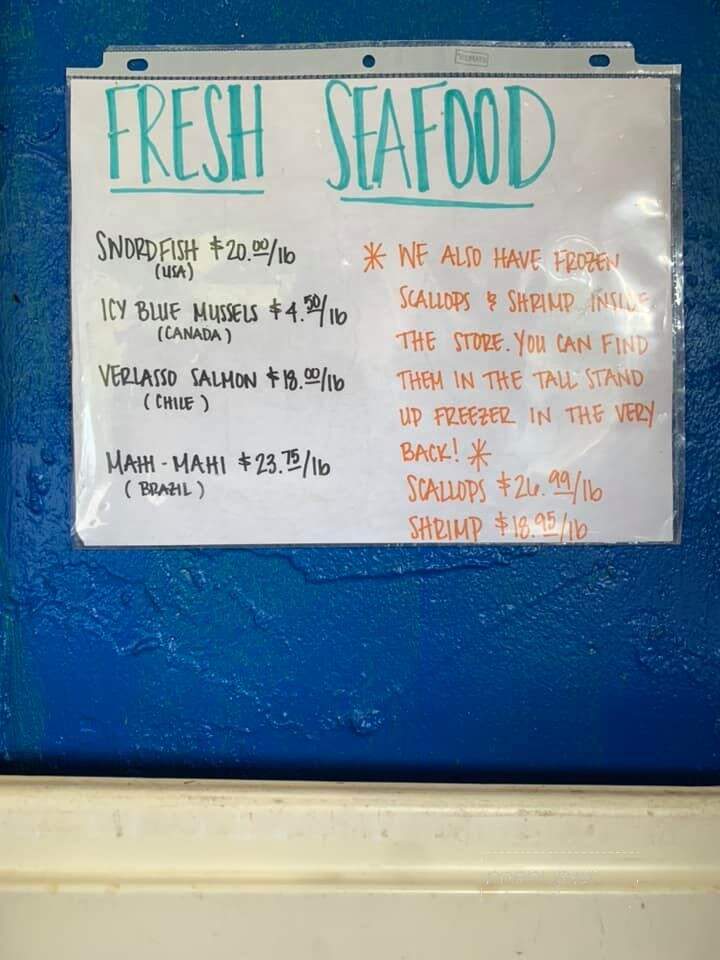 FRESH SEAFOOD
SWORDFISH $20.00/lb
(USA)
ICY BLUE MUSSELS $4.50/lb
(CANADA)
VERLASSO SALMON $18.00/lb
(CHILE)
MAHI-MAHI $23.75/lb
(BRAZIL)
* WE ALSO HAVE FROZEN
SCALLOPS & SHRIMP INSIDE
THE STORE. YOU CAN FIND
THEM IN THE TALL STAND
UP FREEZER IN THE VERY
BACK! *
SCALLOPS $26.99/lb
SHRIMP $18.95/lb